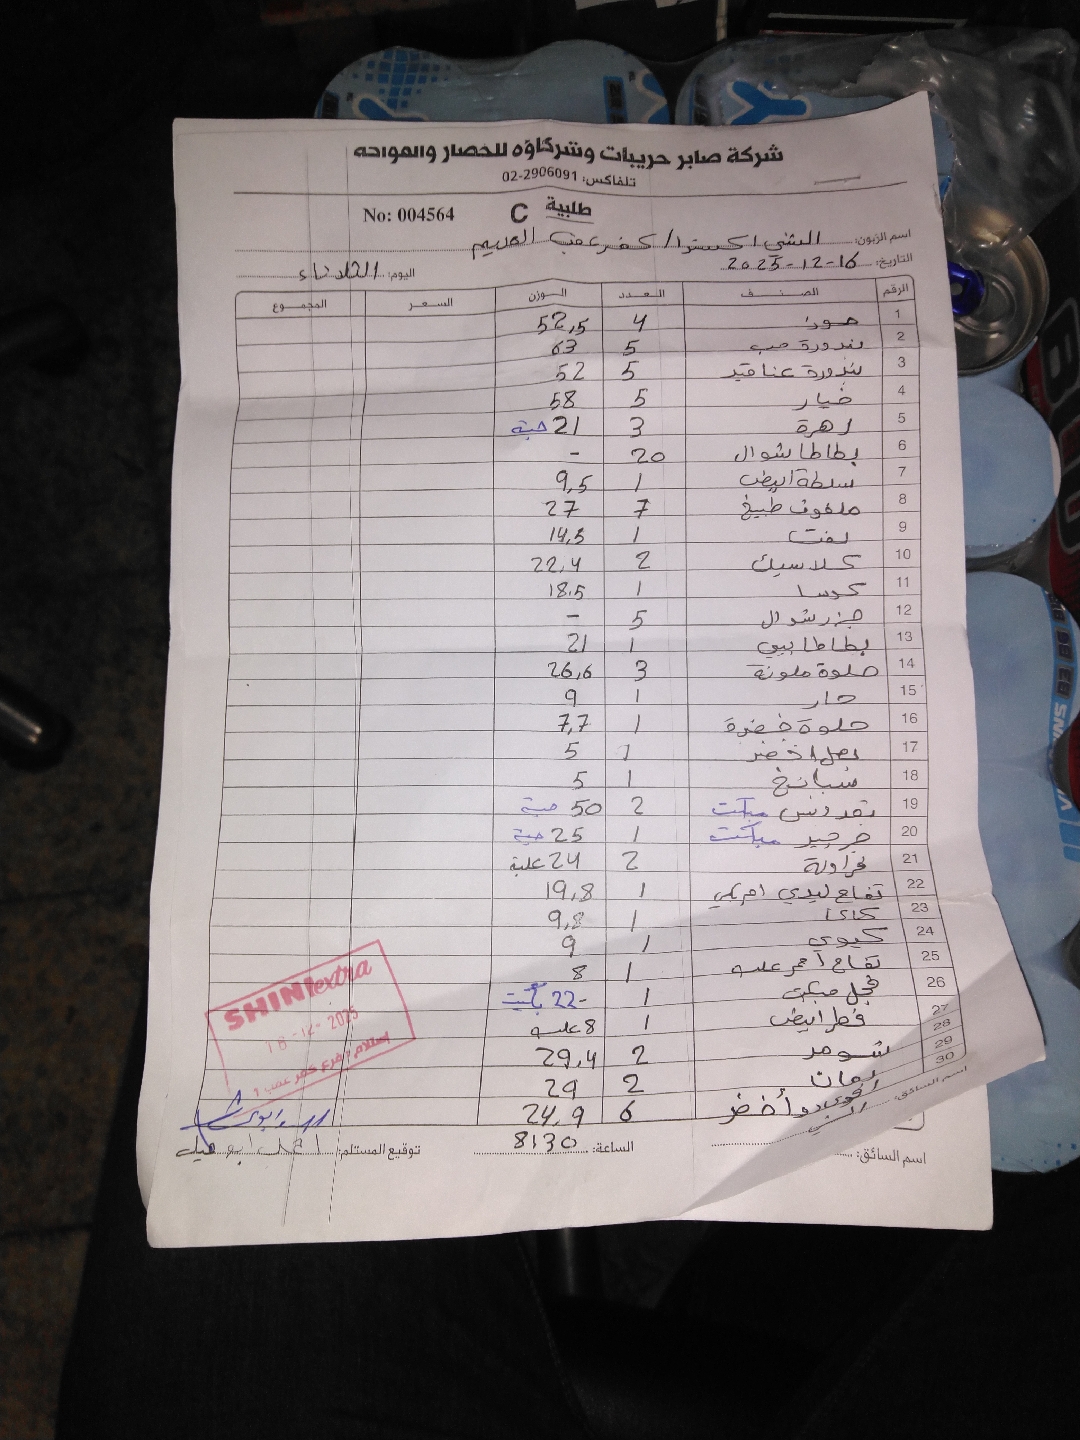 شركة صابر حريبات وشركاؤه للخضار والفواكه
تلفاكس: 02-2906091
No: 004564 C طلبية
اسم الزبون: الشني اكسترا / كفر عقب القديم
التاريخ: 16-12-2025 اليوم: الثلاثاء
الرقم الصنف العدد الوزن السعر المجموع
1 موز 4 52,5
2 بندورة حب 5 63
3 بندورة عناقيد 5 52
4 خيار 5 58
5 زهرة 3 21 حبة
6 بطاطا شوال 20 -
7 سلطة ابيض 1 9,5
8 ملفوف طبيخ 7 27
9 لفت 1 14,5
10 كلاسيك 2 22,4
11 كوسا 1 18.5
12 جزر شوال 5 -
13 بطاطا بيبي 1 21
14 حلوة ملونة 3 26,6
15 حار 1 9
16 حلوة خضرة 1 7,7
17 بصل اخضر 1 5
18 سبانخ 1 5
19 بقدونس مبكت 2 50 حبة
20 جرجير مبكت 1 25 حبة
21 فراولة 2 24 علبة
22 تفاح ليدي امريكي 1 19,8
23 كاكا 1 9,8
24 كيوي 1 9
25 تفاح أحمر علبه 1 8
26 فجل مبكت 1 22- بكيت
27 فطر ابيض 1 8 علبه
28 شومر 2 29,4
29 رمان 2 29
30 أفوكادو أخضر 6 24,9
SHINI extra
16-12-2025
إستلام / فرع كفر عقب
اسم السائق:
اسم السائق: الساعة: 8:30 توقيع المستلم: